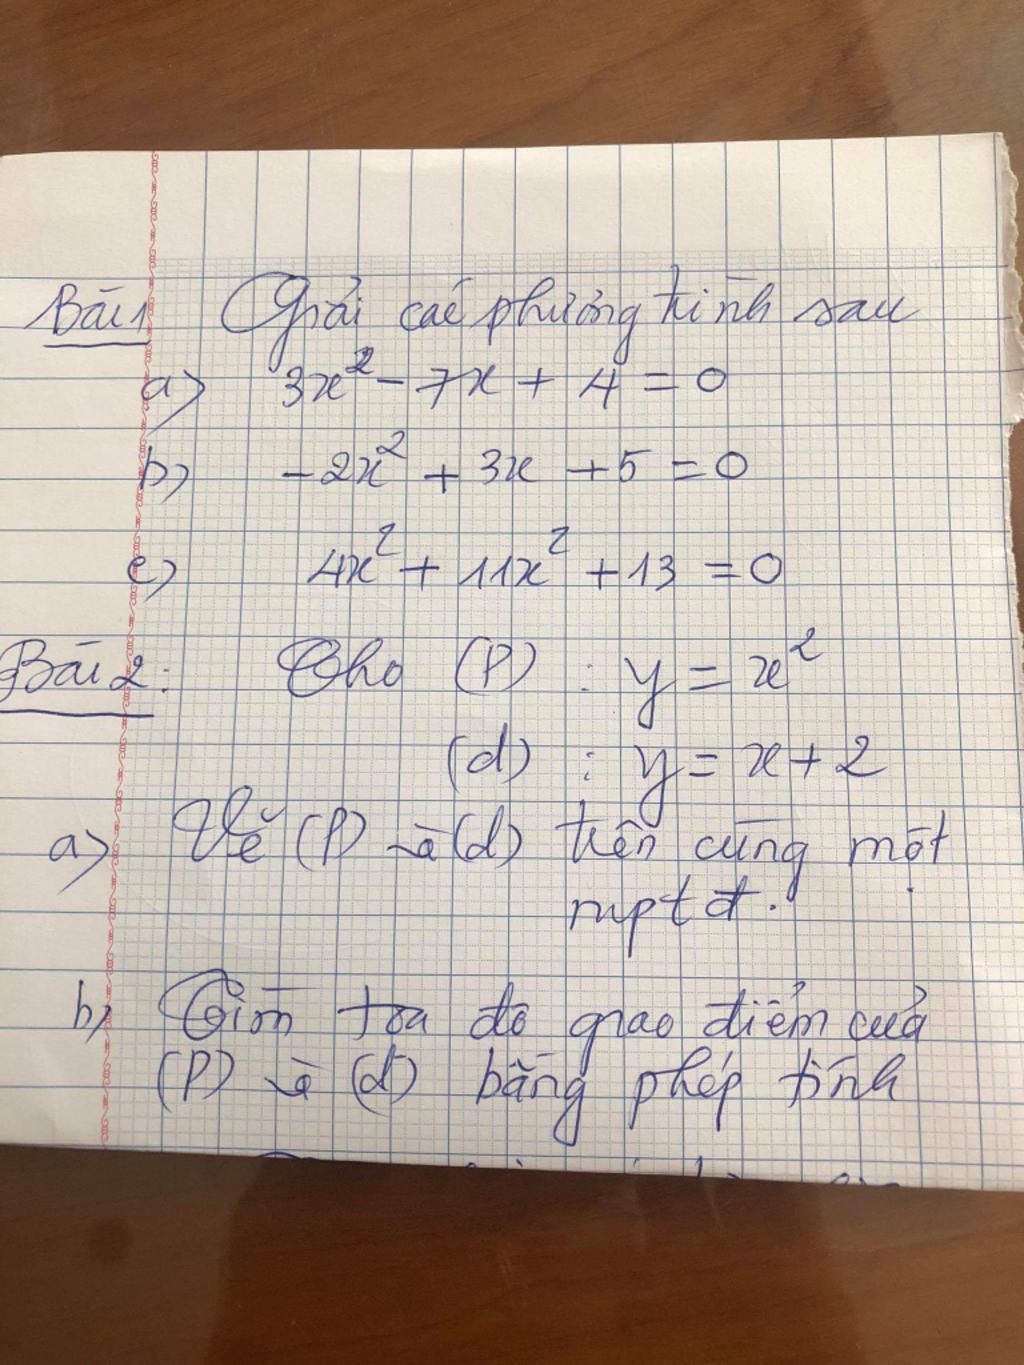 Bài 1 Giải các phương trình sau
a) 3x² - 7x + 4 = 0
b) -2x² + 3x + 5 = 0
c) 4x² + 11x² + 13 = 0
Bài 2: Cho (P) : y = x²
(d) : y = x + 2
a) Vẽ (P) và (d) trên cùng một
mptđ.
b) Tìm tọa độ giao điểm của
(P) và (d) bằng phép tính